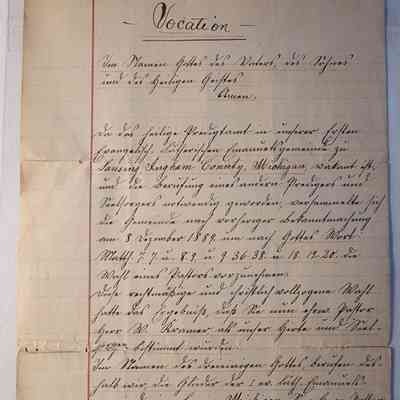 – Vocation –
Im Namen Gottes des Vaters, des Sohnes
und des Heiligen Geistes
Amen.
Da das heilige Predigtamt in unserer Ersten
Evangelisch Lutherischen Emanuelsgemeinde zu
Lansing Ingham County, Michigan, vakant ist,
und die Berufung eines andern Predigers und
Seelsorgers notwendig geworden, versammelte sich
die Gemeinde nach vorheriger Bekanntmachung
am 8. Dezember 1889 um nach Gottes Wort
Matth. 7. 7. u. 8. 9. u. 9. 36-38. u. 18. 19. 20. die
Wahl eines Pastors vorzunehmen.
Diese rechtmäßige und christlich vollzogene Wahl
hatte das Ergebniß, daß Sie nun ehrw. Pastor
Herr W. als unser Hirte und Seel-
sorger bestimmt wurden.
Im Namen des dreieinigen Gottes, berufen des-
halb wir, die Glieder der 1. ev. luth. Emanuels-